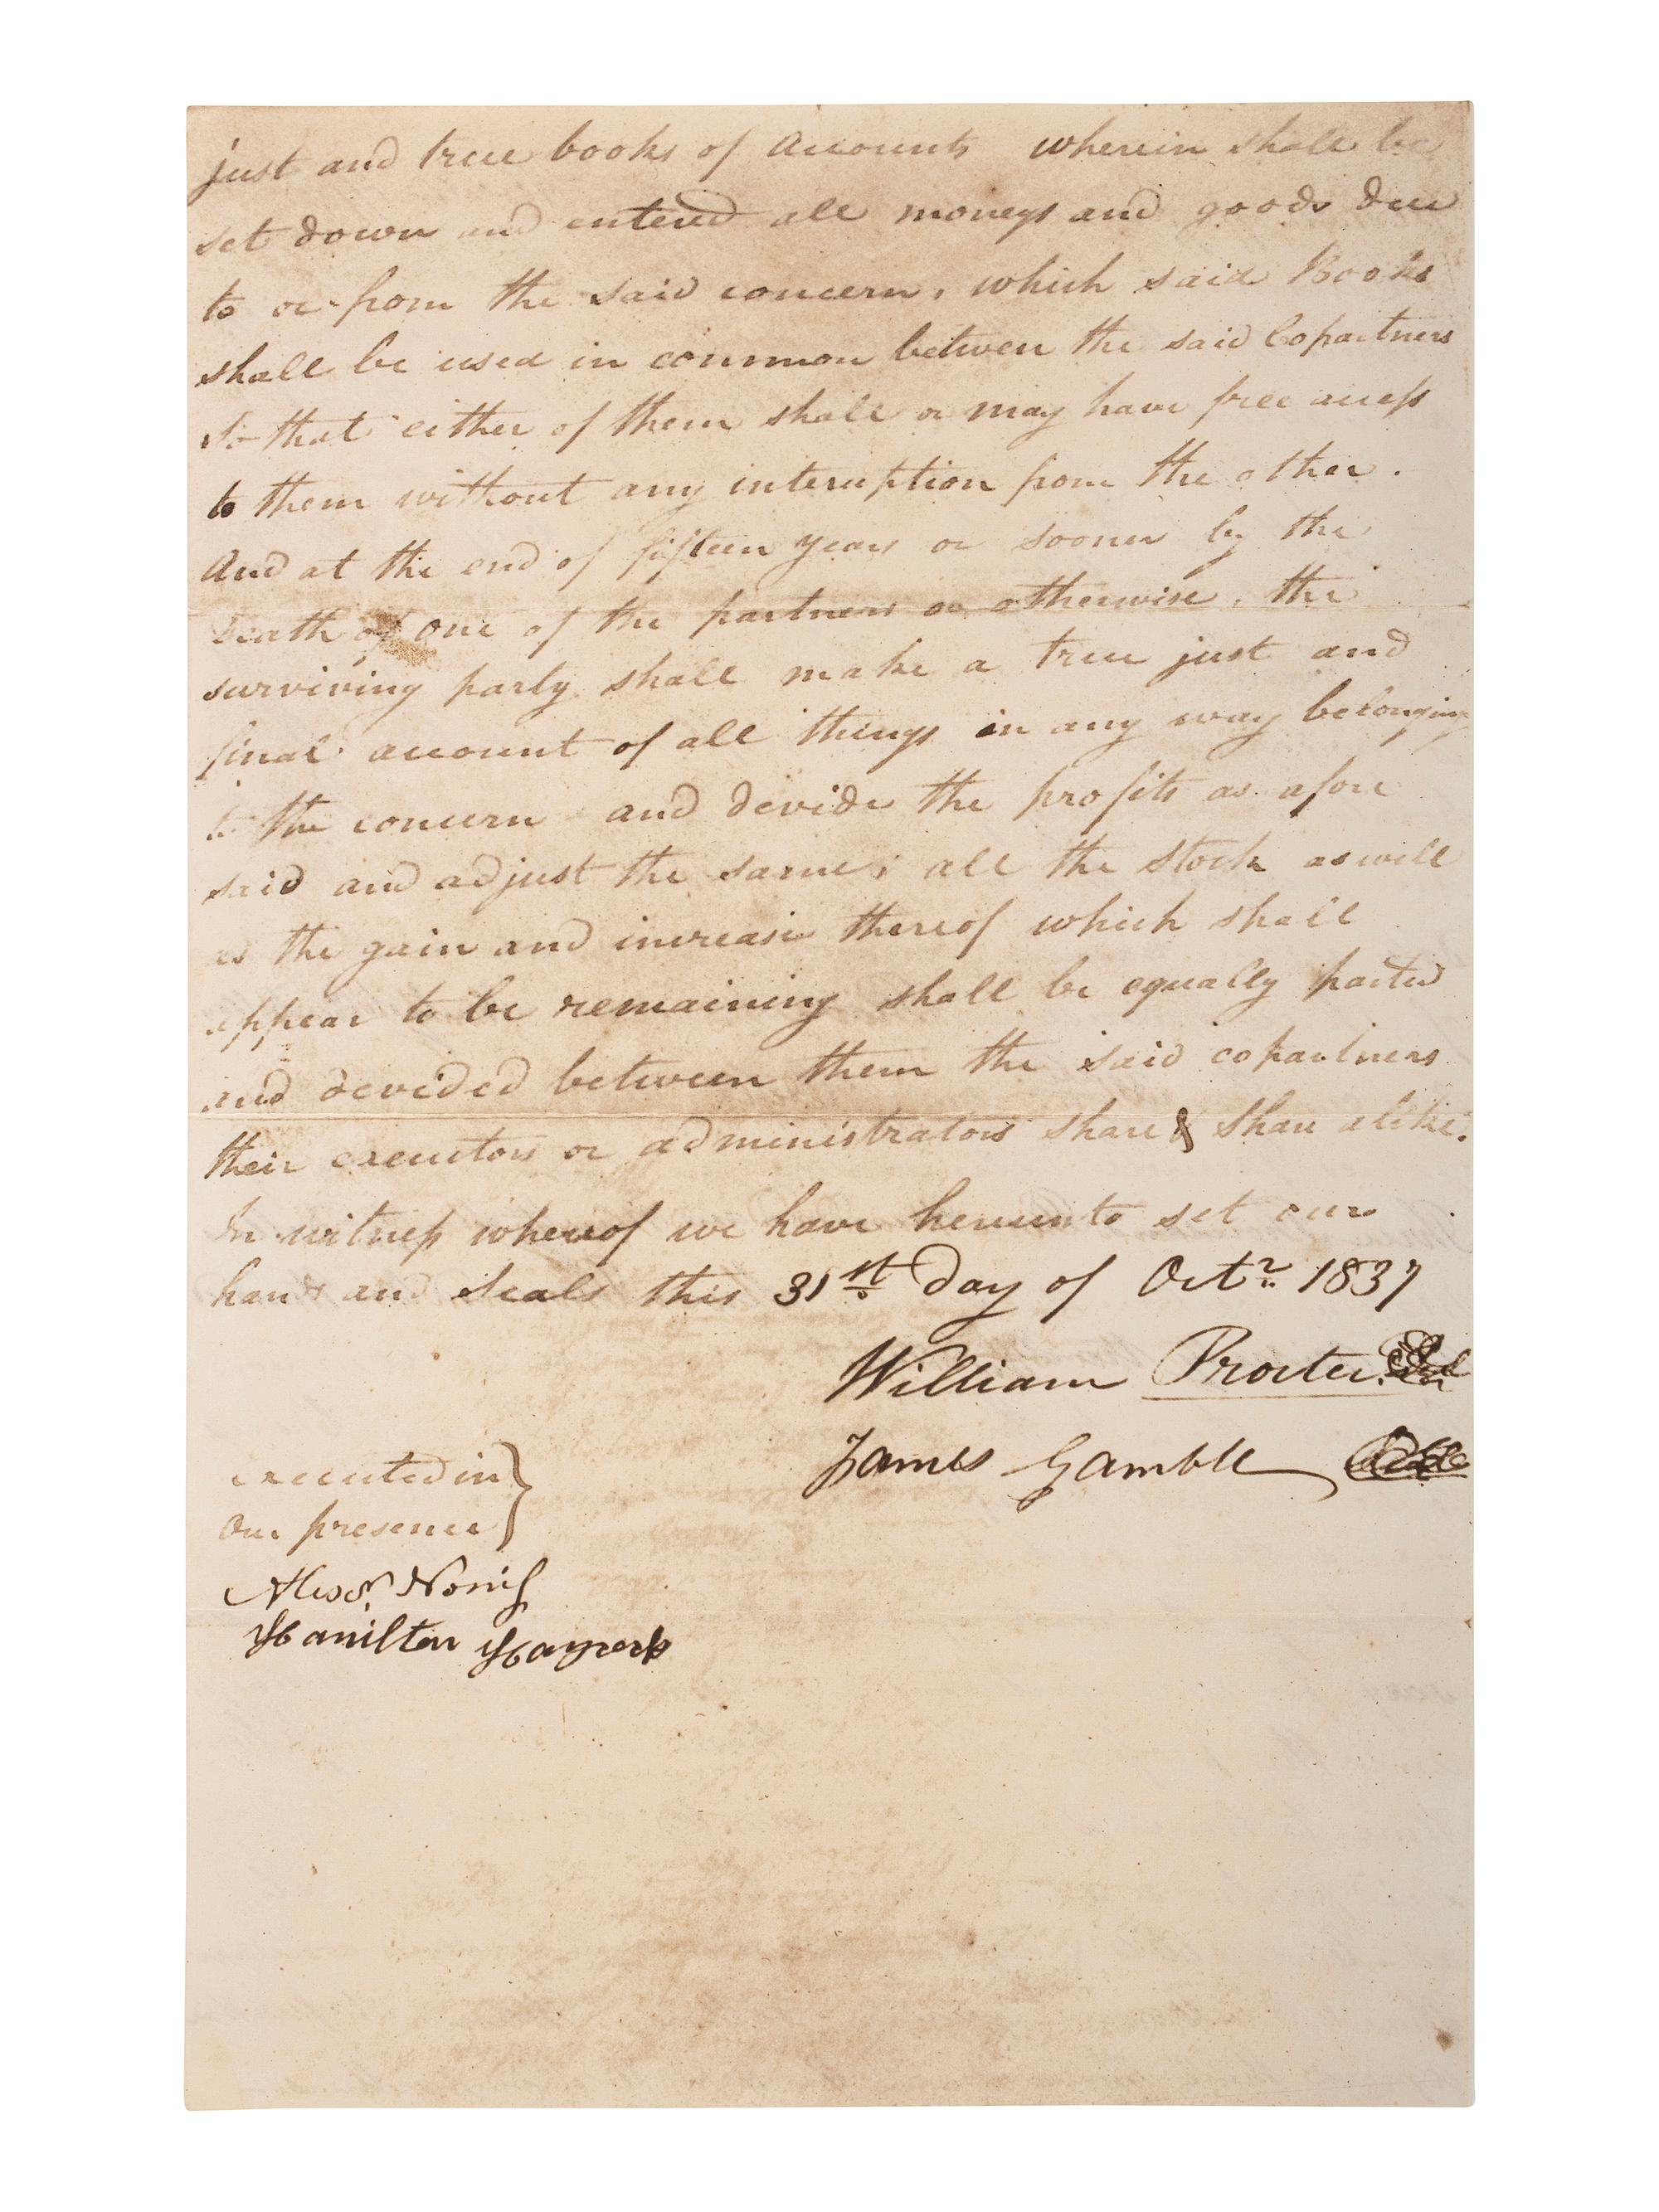 just and true books of Accounts wherein shall be
set down and entered all moneys and goods due
to or from the said concern, which said Books
shall be used in common between the said Copartners
so that either of them shall or may have free access
to them without any interuption from the other.
And at the end of fifteen years or sooner by the
death of one of the partners or otherwise, the
surviving party shall make a true just and
final account of all things in any way belonging
to the concern and devide the profits as afore
said and adjust the same; all the stock as well
as the gain and increase thereof which shall
appear to be remaining shall be equally parted
and devided between them the said copartners
their executors or administrators share & share alike.
In witness whereof we have hereunto set our
hands and seals this 31st day of Octr 1837
William Procter
James Gamble
executed in
our presence
Alexr. Norris
Hamilton